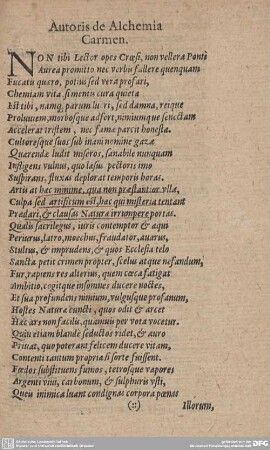 Autoris de Alchemia
Carmen.
NON tibi Lector opes Crœsi, non vellera Ponti
Aurea promitto nec verbis fallere quenquam
Fucatis quæro, potius sed vera profari,
Chemiam vita, si mentis cura quieta
Est tibi, namq; parum lucri, sed damna, reique
Proluuiem, morbosque adfert, nimiumque senectam
Accelerat tristem, nec fama parcit honestæ.
Cultoresque suos sub inani nomine gazæ
Quærendæ ludit miseros, sanabile nunquam
Infligens vulnus, quo læsi pectoris imo
Suspirant, fluxas deplorat temporis horas.
Artis at hac minime, qua non præstantior vlla,
Culpa sed artificum est, hac qui mysteria tentant
Prædari, & clausas Naturæ irrumpere portas.
Qualis sacrilegus, iuris contemptor & æqui
Periurus, latro, mœchus, fraudator, auarus,
Stultus, & imprudens, & quos Ecclesia telo
Sancta petit crimen propter, scelus atque nefandum,
Fur, rapiens res alterius, quem cæca fatigat
Ambitio, cogitque insomnes ducere noctes,
Et sua profundens nimium, vulgusque profanum,
Hostes Naturæ cuncti, quos odit & arcet
Hæc ars non facilis, quamuis per vota vocetur.
Quin etiam blande seductos ridet, & auro
Priuat, quo poterant felicem ducere vitam,
Contenti tantum propria si sorte fuissent.
Fœdos substituens fumos, tetrosque vapores
Argenti viui, carbonum, & sulphuris vsti,
Queis inimica luant condignas corpora pœnas
(::) Illorum,